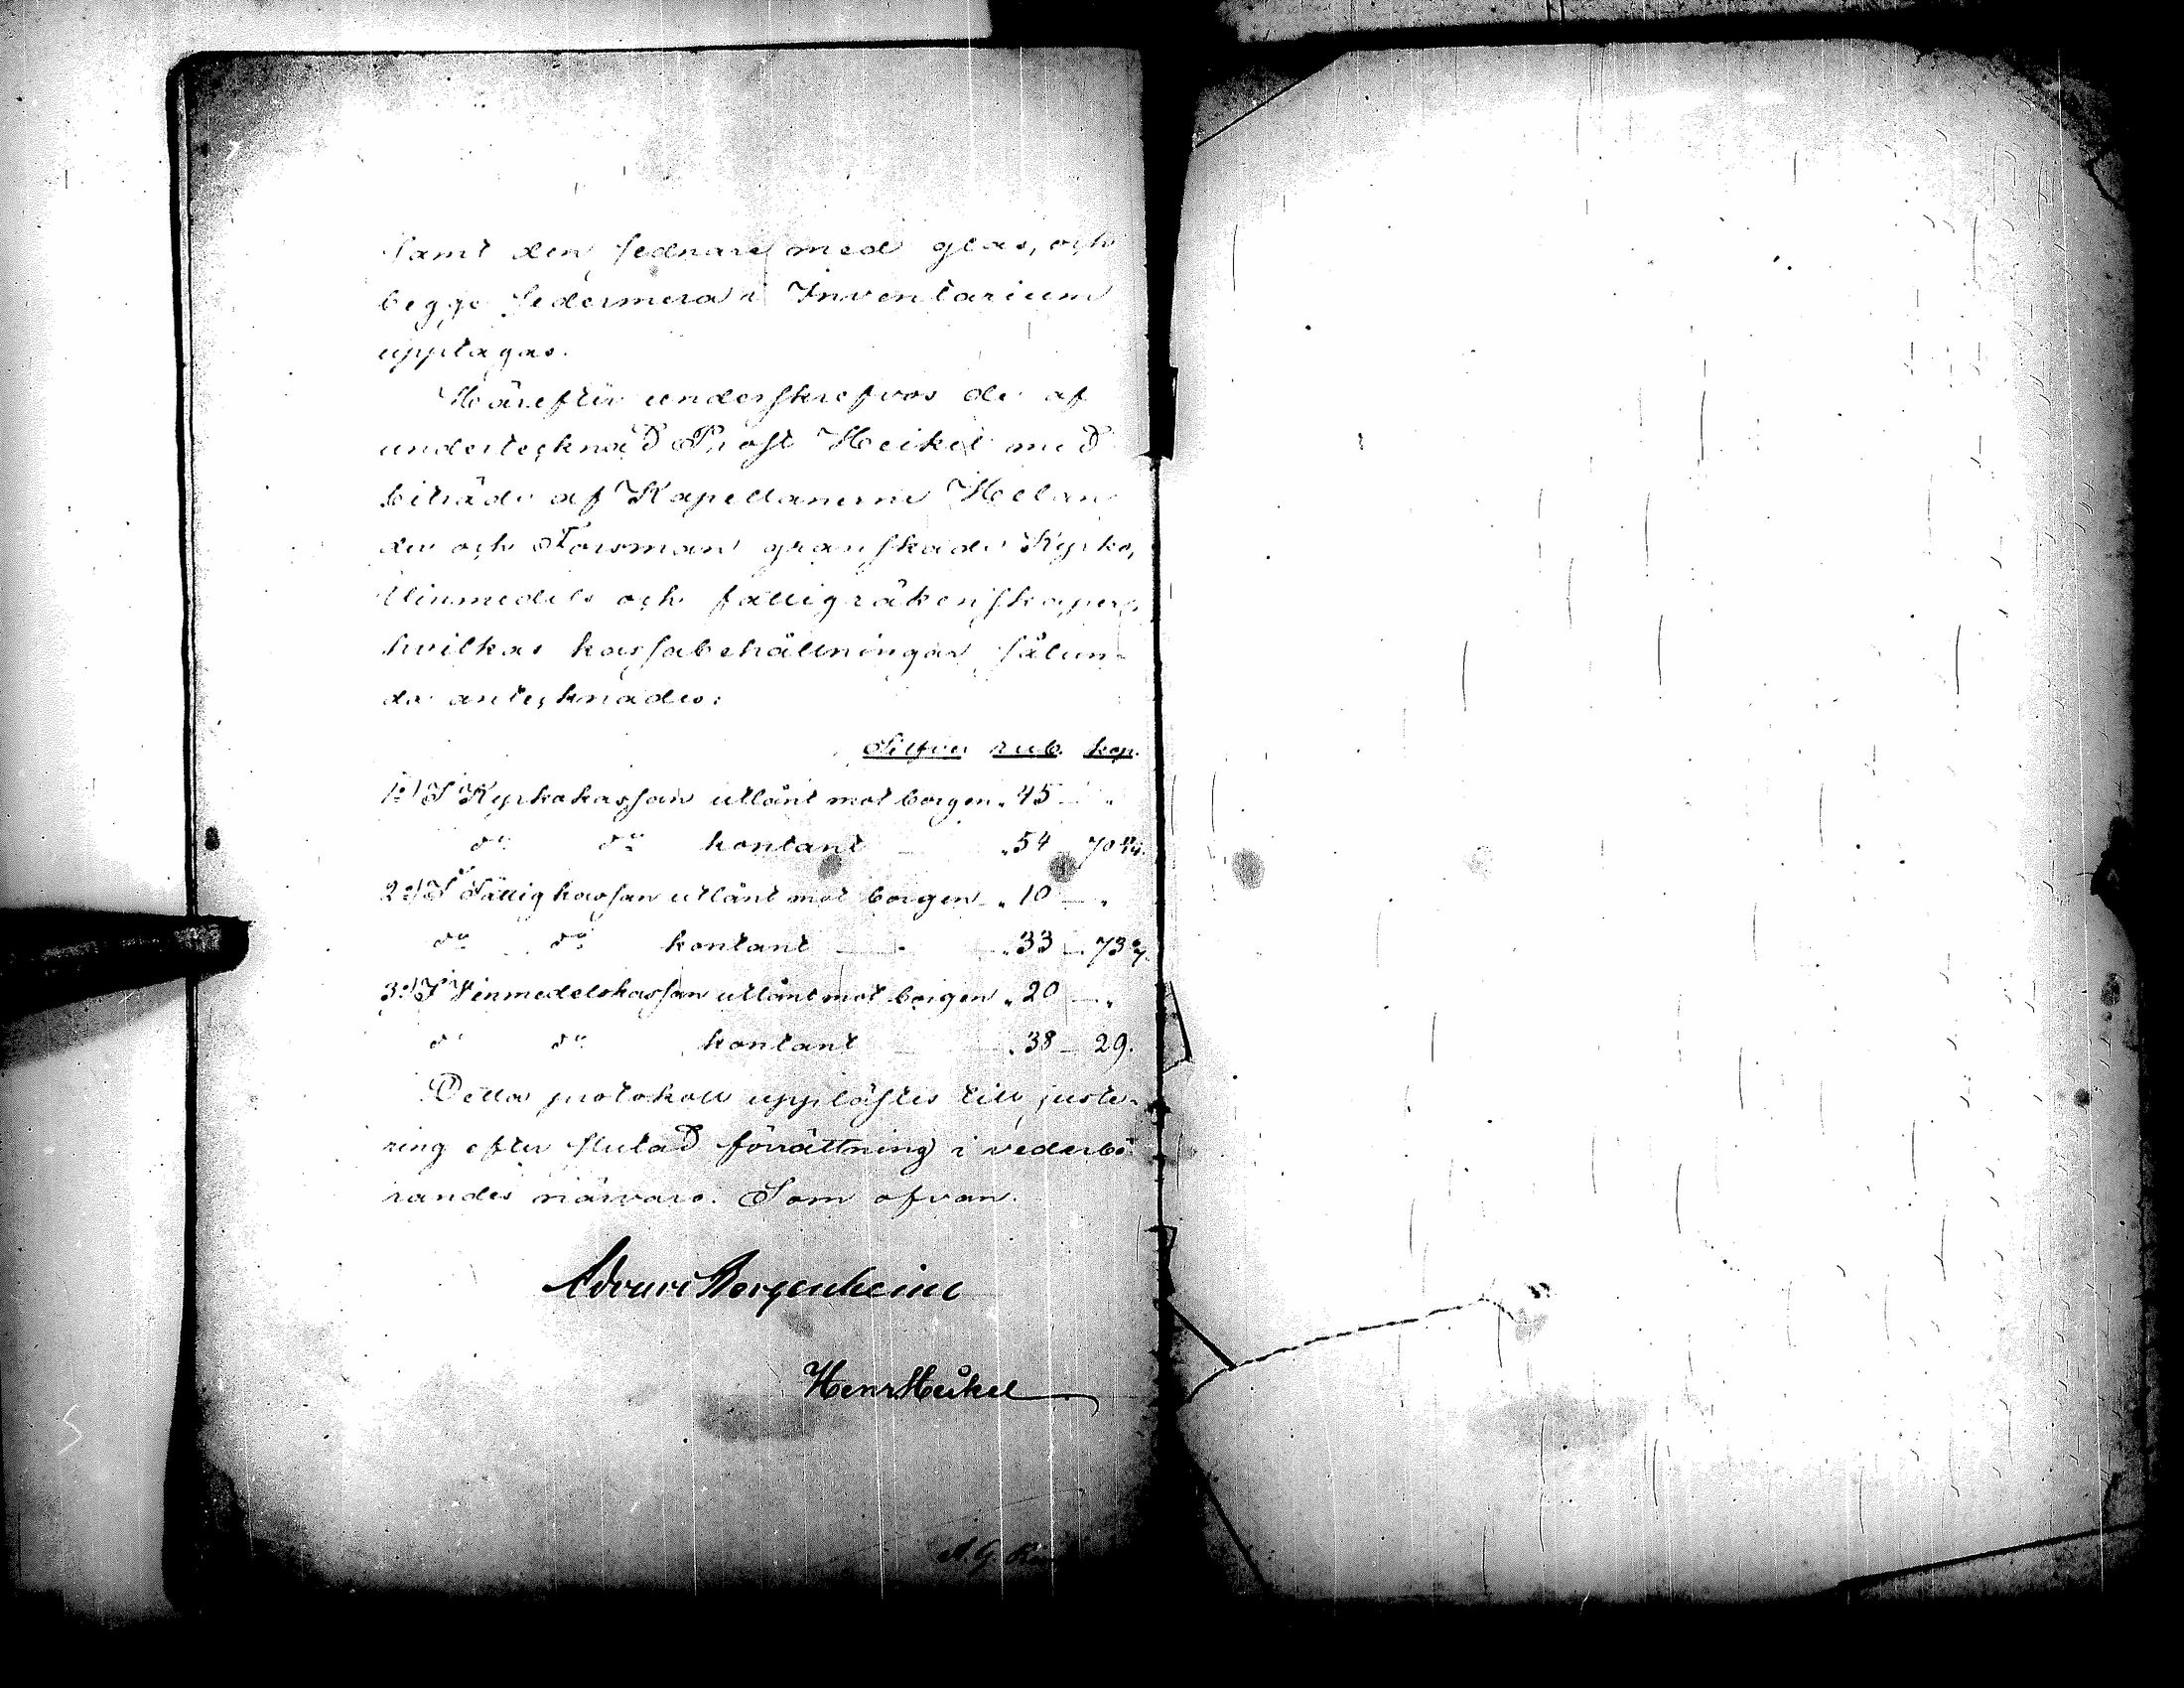 samt den sednare med glas, och
begge sedermera i Inventarium
upptagas.
Härefter underskrefvos de af
undertecknad Prost Heikel med
biträde af Kapellanerne Helan
der och Forsman granskade Kyrko,
Vinmedels och fattigräkenskaper,
hvilkas kassabehållningar sålun-
da antecknades:
Silfver rub. kop.
1:o) I Kyrkokassan utlånt mot borgen „ 45 — „
do do kontant „ 54 — 70
2:o) I Fattigkassan utlånt mot borgen — „ 10 — „
do do kontant — „ 33 — 73
3:o) I Vinmedelskassan utlånt mot borgen „ 20 — „
do do kontant „ 38 — 29.
Detta protokoll upplästes till juste-
ring efter slutad förrättning i vederbö
randes närvaro. Som ofvan.
Edvard Bergenheim
Henr Heikel
A. G.